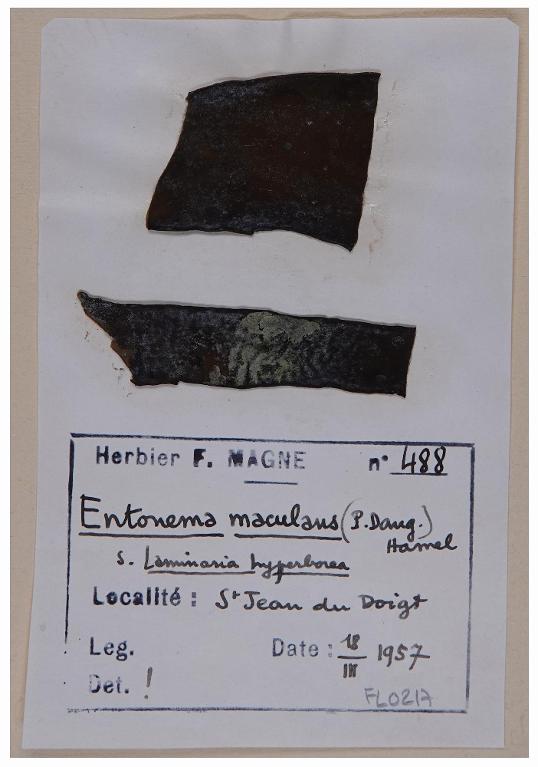 Herbier F. MAGNE n° 488
Entonema maculans (P. Dang.)
Hamel
s. Laminaria hyperborea
Localité : St Jean du Doigt
Leg. Date : 18/III 1957
Det. !
FL0217